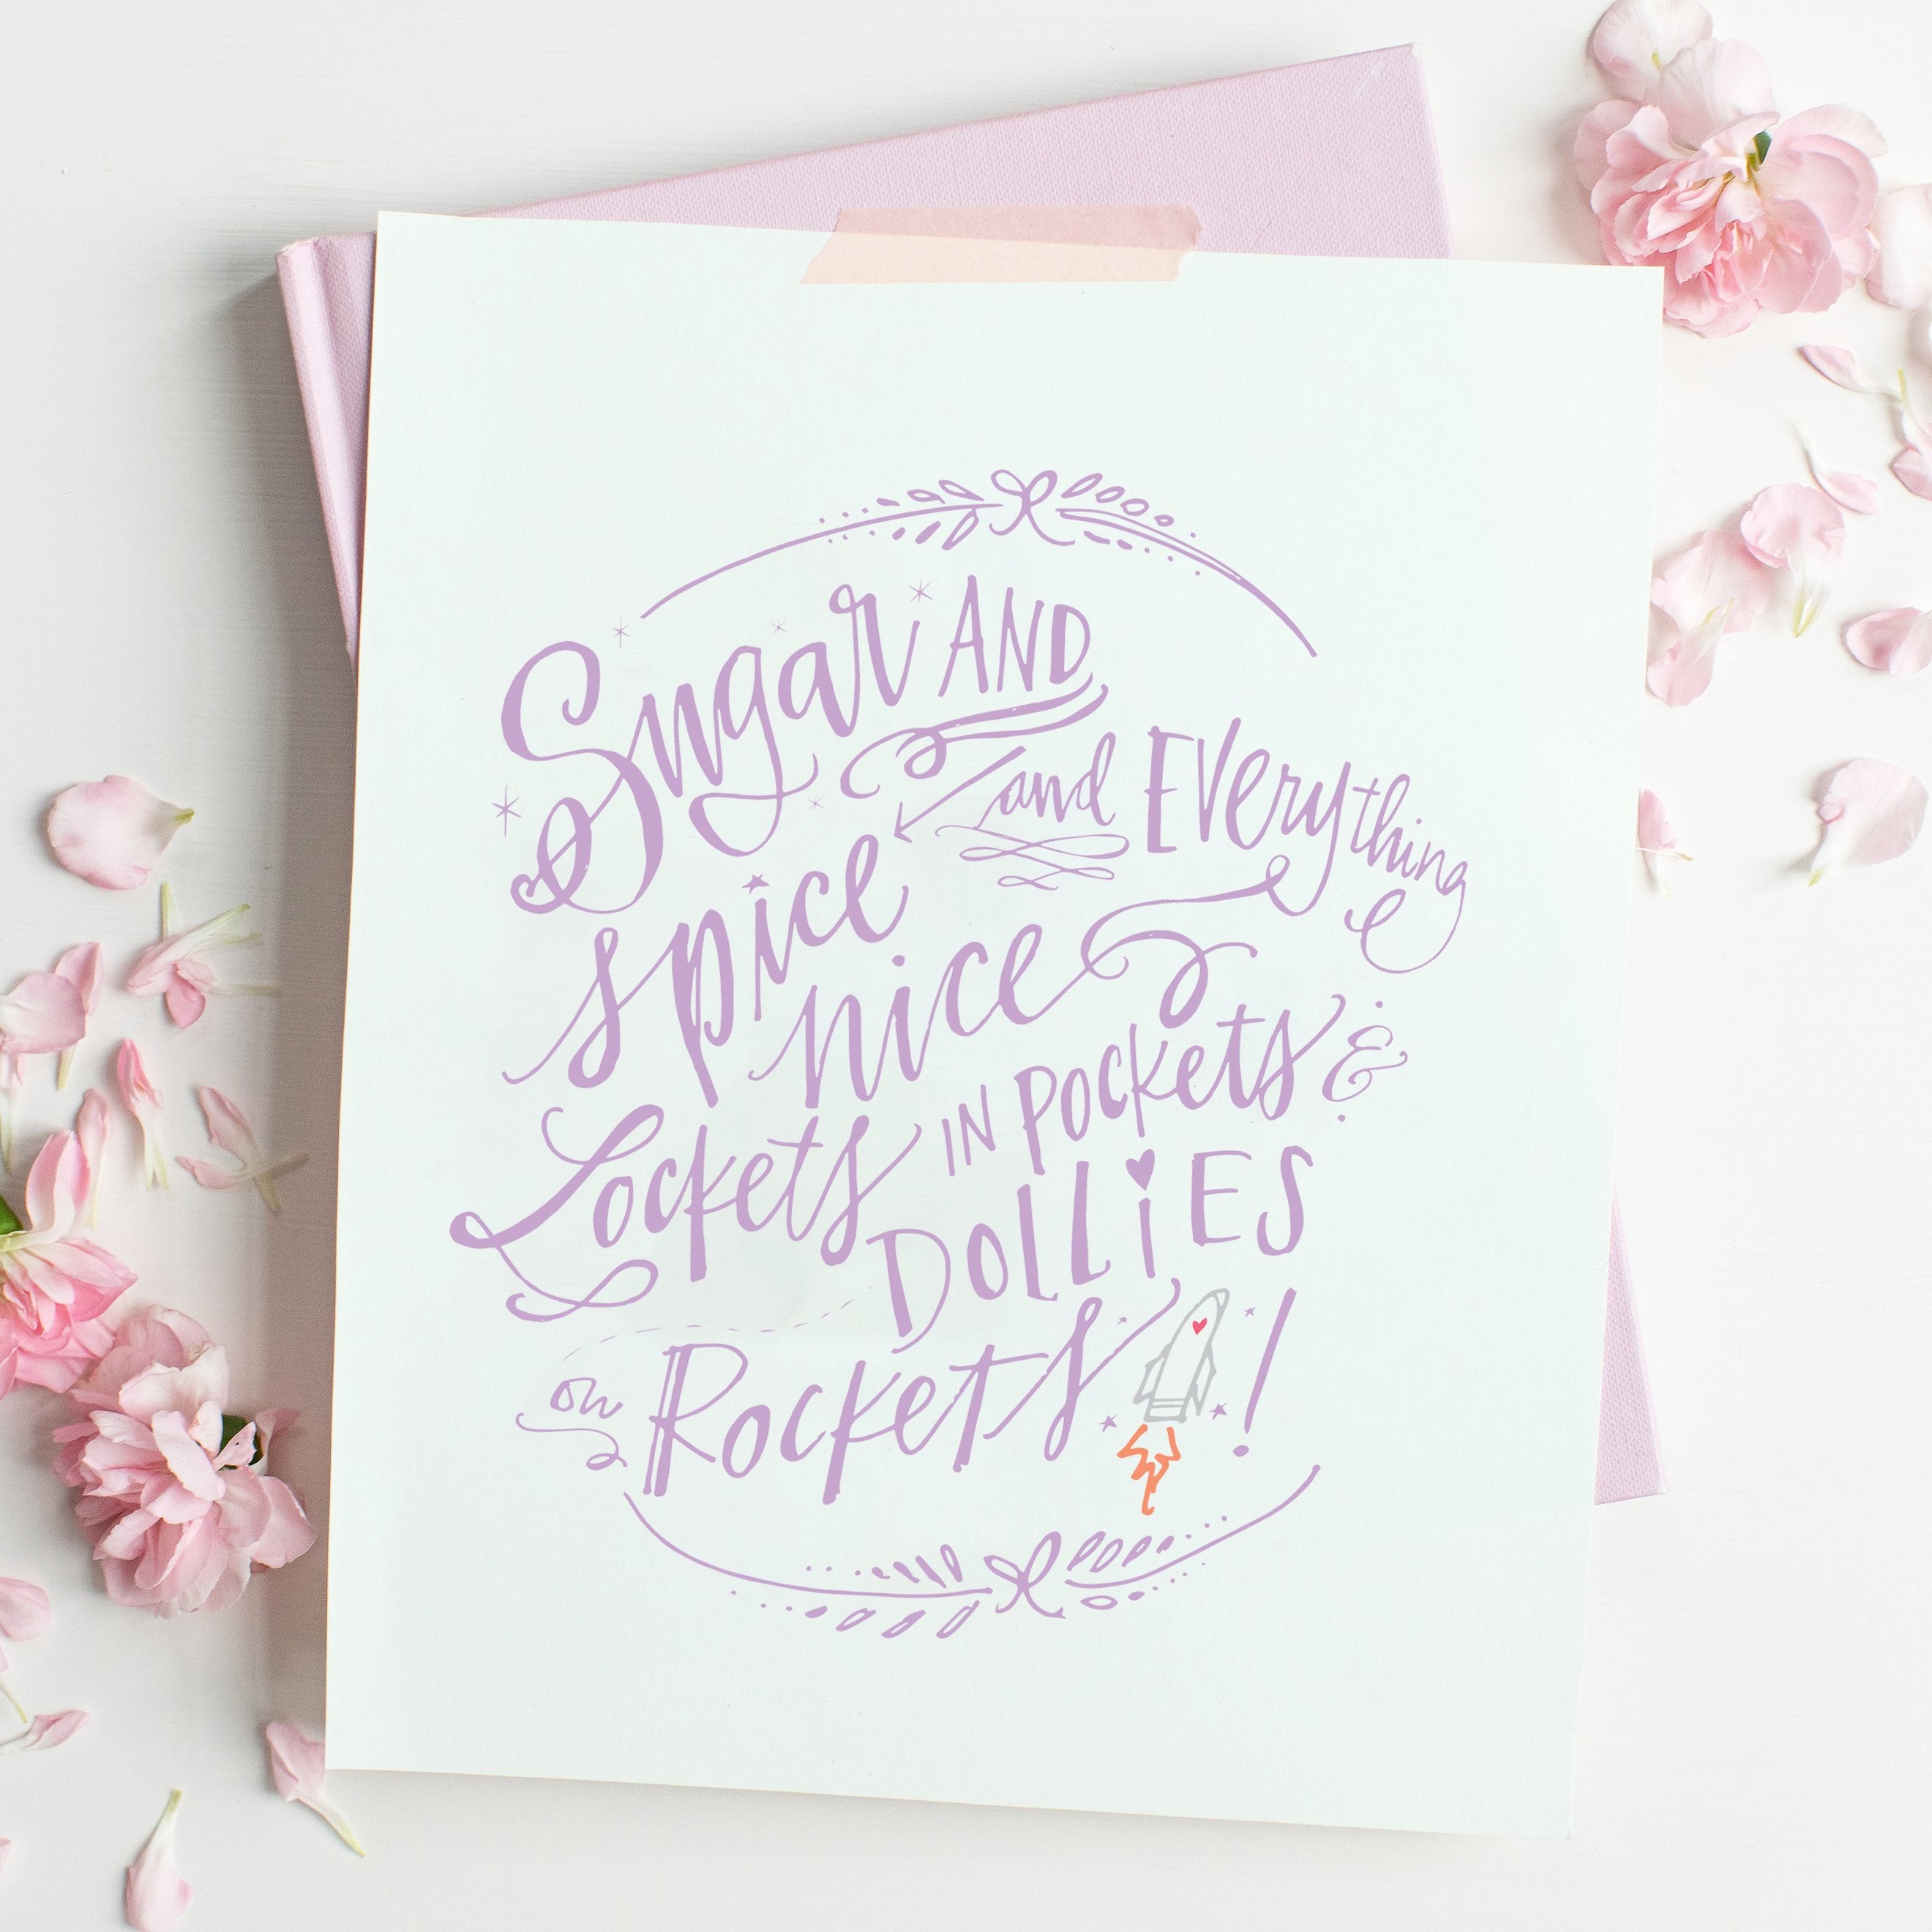 Sugar AND
spice and EVerything
nice
Lockets IN Pockets &
DOLLiES
on Rockets!